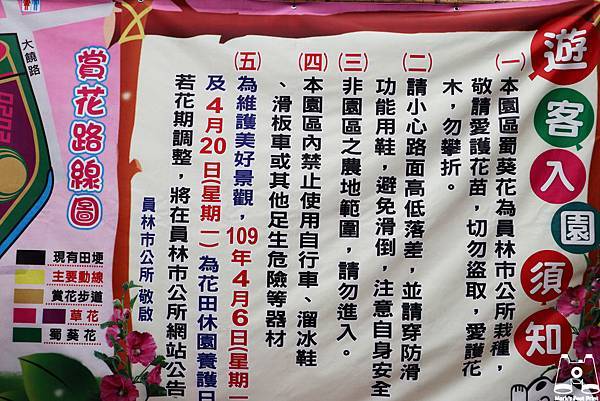 遊客入園須知
(一)本園區蜀葵花為員林市公所栽種，
敬請愛護花苗，切勿盜取，愛護花
木，勿攀折。
(二)請小心路面高低落差，並請穿防滑
功能用鞋，避免滑倒，注意自身安全
(三)非園區之農地範圍，請勿進入。
(四)本園區內禁止使用自行車、溜冰鞋
、滑板車或其他足生危險等器材
(五)為維護美好景觀，109年4月6日(星期一)
及4月20日(星期一)為花田休園養護日
若花期調整，將在員林市公所網站公告
員林市公所 敬啟
大饒路
賞花路線圖
現有田埂
主要動線
賞花步道
草花
蜀葵花
Mark's Foot Print